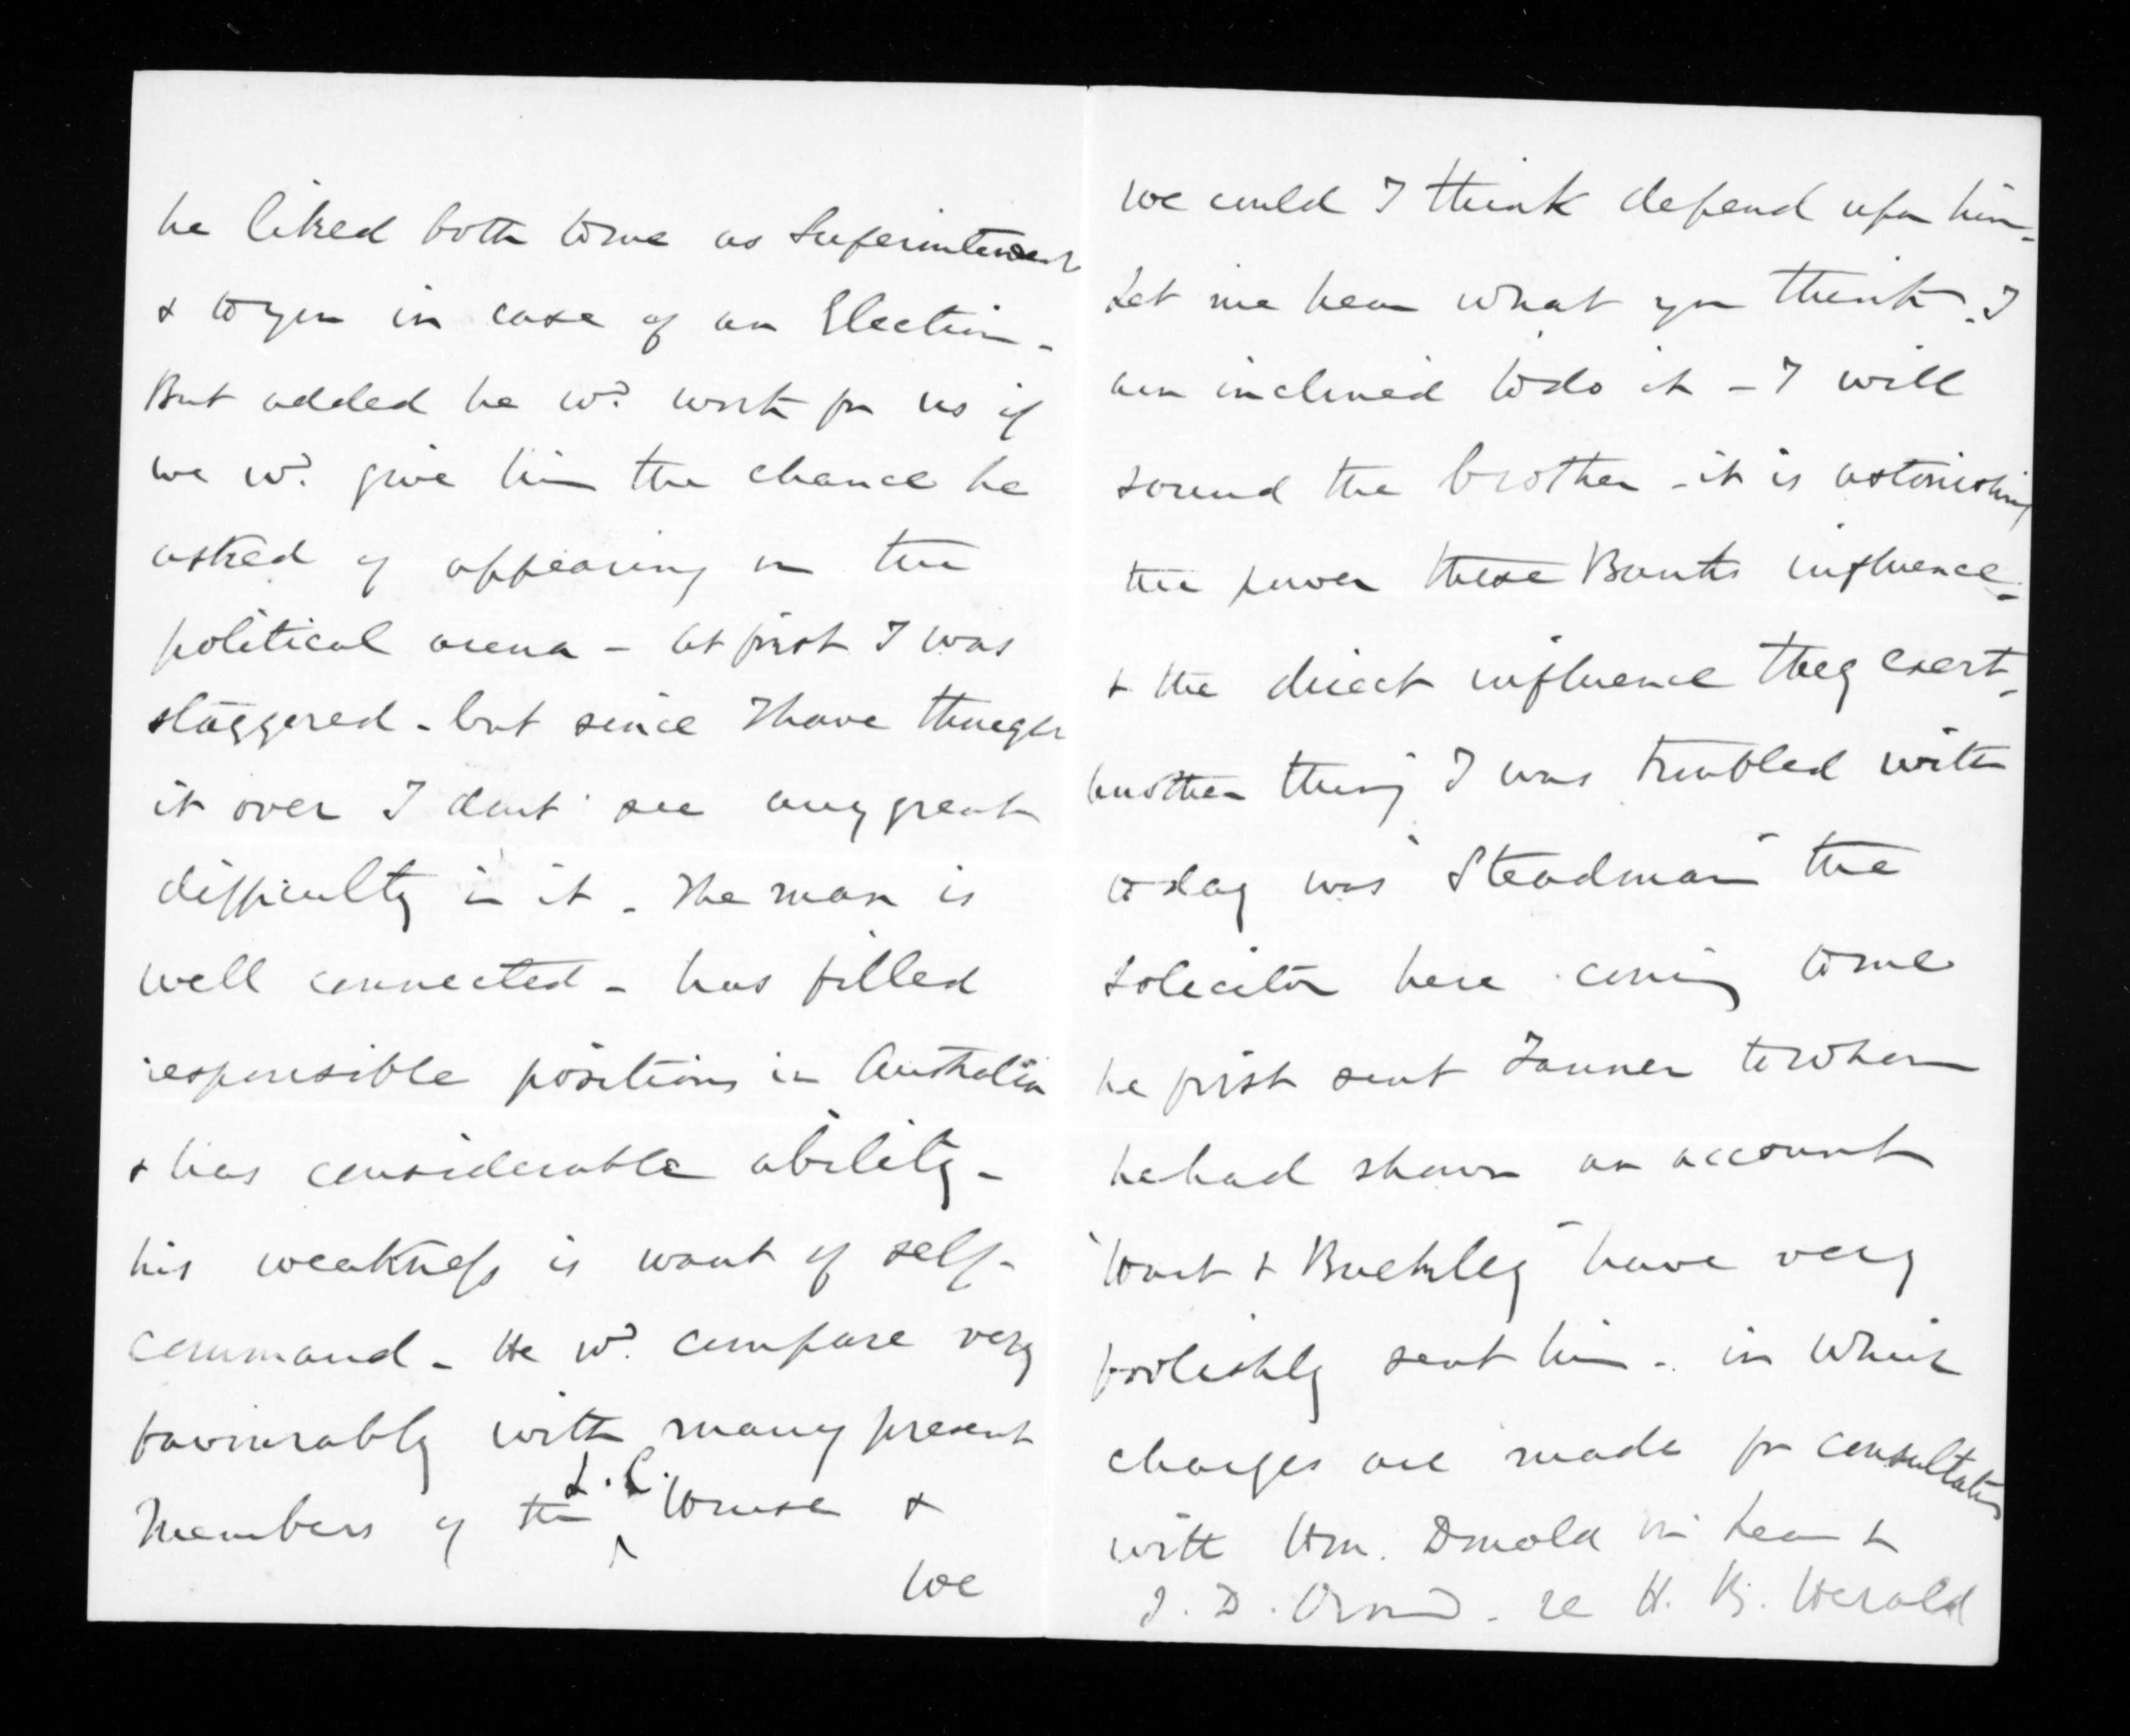 he liked both to me as Superintendent
& to you in case of an Election -
But added he wd. work for us if
we wd. give him the chance he
asked of appearing in the
political arena - at first I was
staggered - but since I have thought
it over I dont see any great
difficulty in it - The man is
well connected - has filled
responsible positions in Australia
& has considerable ability -
his weakness is want of self-
command - He wd. compare very
favourably with many present
Members of the L.C. House &
We
we could I think depend upon him -
Let me hear what you think. I
am inclined to do it - I will
sound the brother - it is astonishing
the power these Banks influence -
& the direct influence they exert -
Another thing I was troubled with
today was "Steadman" the
Solicitor here coming to me
he first sent Tanner to whom
he had shown an account
"Hart & Buckley" have very
foolishly sent him - in which
charges are made for consultation
with Hon. Donald &
J. D. Ormond - re H. B. Herald